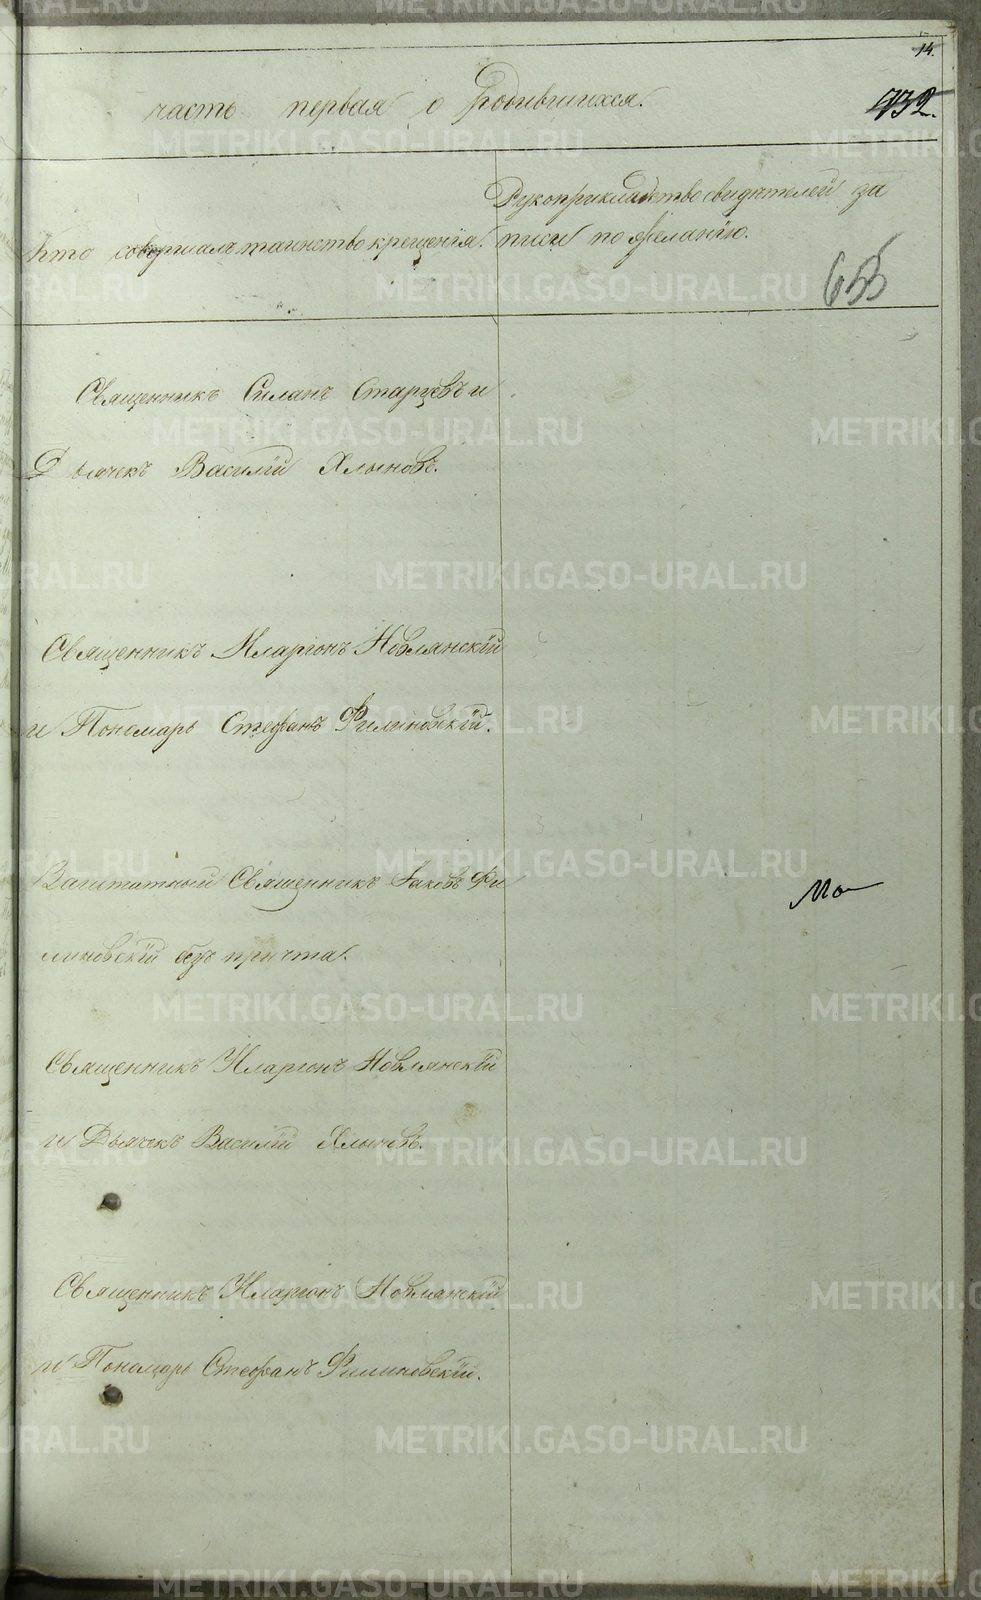 14.
часть первая о родившихся.
732.
Рукоприкладство свидѣтелей за
Кто совершалъ таинство крещенія. писи по желанію.
655
Священникъ Силанъ Старцевъ и
Дьячекъ Василій Хлыновъ.
Священникъ Иларіонъ Новлянскій
и Пономарь Стефанъ Филиновскій.
Заштатный Священникъ Іаковъ Фи
линовскій безъ причта.
Священникъ Иларіонъ Новлянскій
и Дьячекъ Василій Хлыновъ.
Священникъ Иларіонъ Новлянскій
и Пономарь Стефанъ Филиновскій.
METRIKI.GASO-URAL.RU